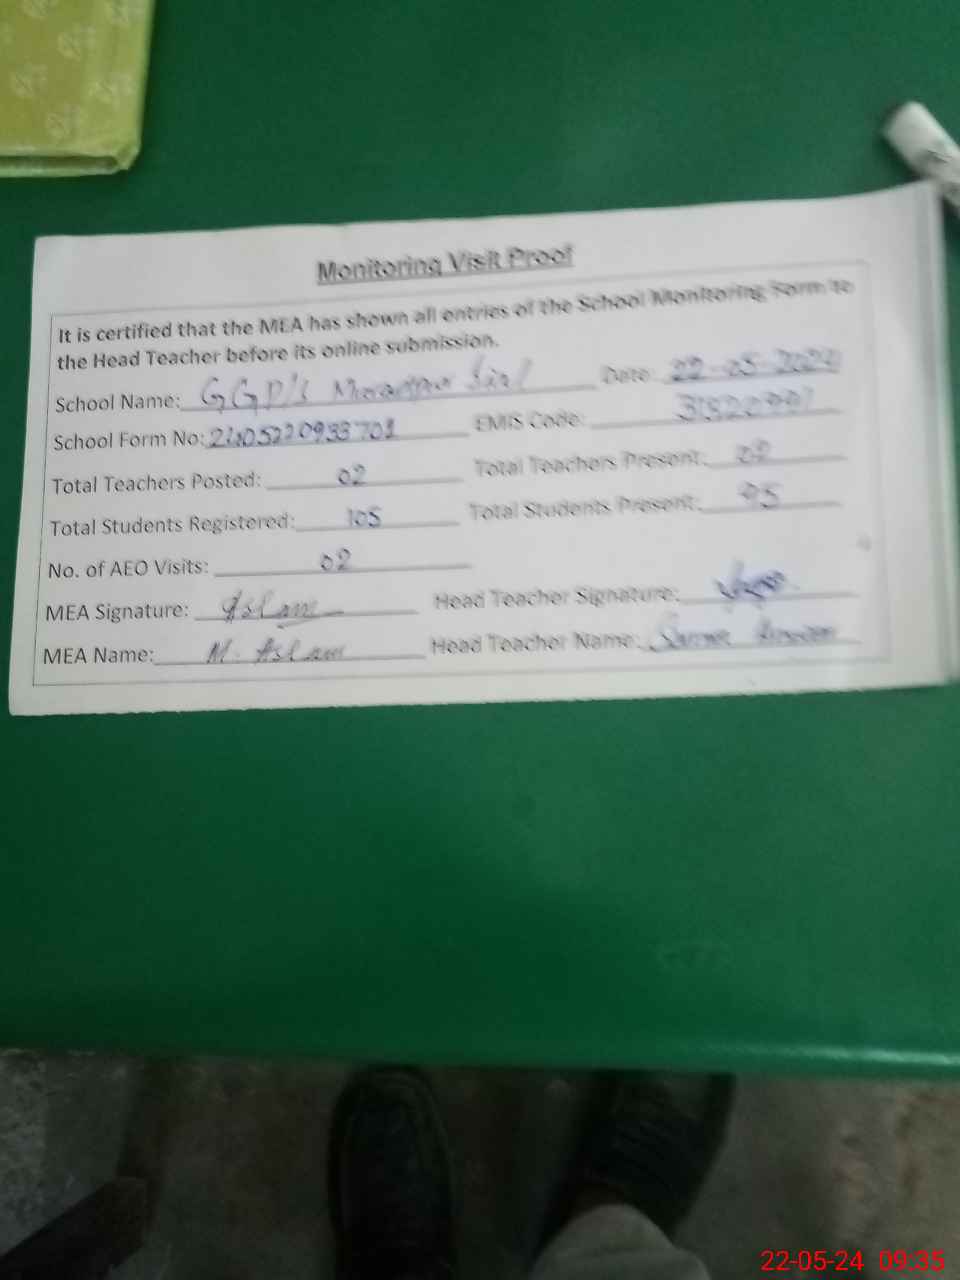 Monitoring Visit Proof
It is certified that the MEA has shown all entries of the School Monitoring Form to
the Head Teacher before its online submission.
School Name: GGP/S Date: 22-05-2024
School Form No: EMIS Code:
Total Teachers Posted: 02 Total Teachers Present: 02
Total Students Registered: 105 Total Students Present: 95
No. of AEO Visits: 02
MEA Signature: Aslam Head Teacher Signature:
MEA Name: M. Aslam Head Teacher Name:
22-05-24 09:35